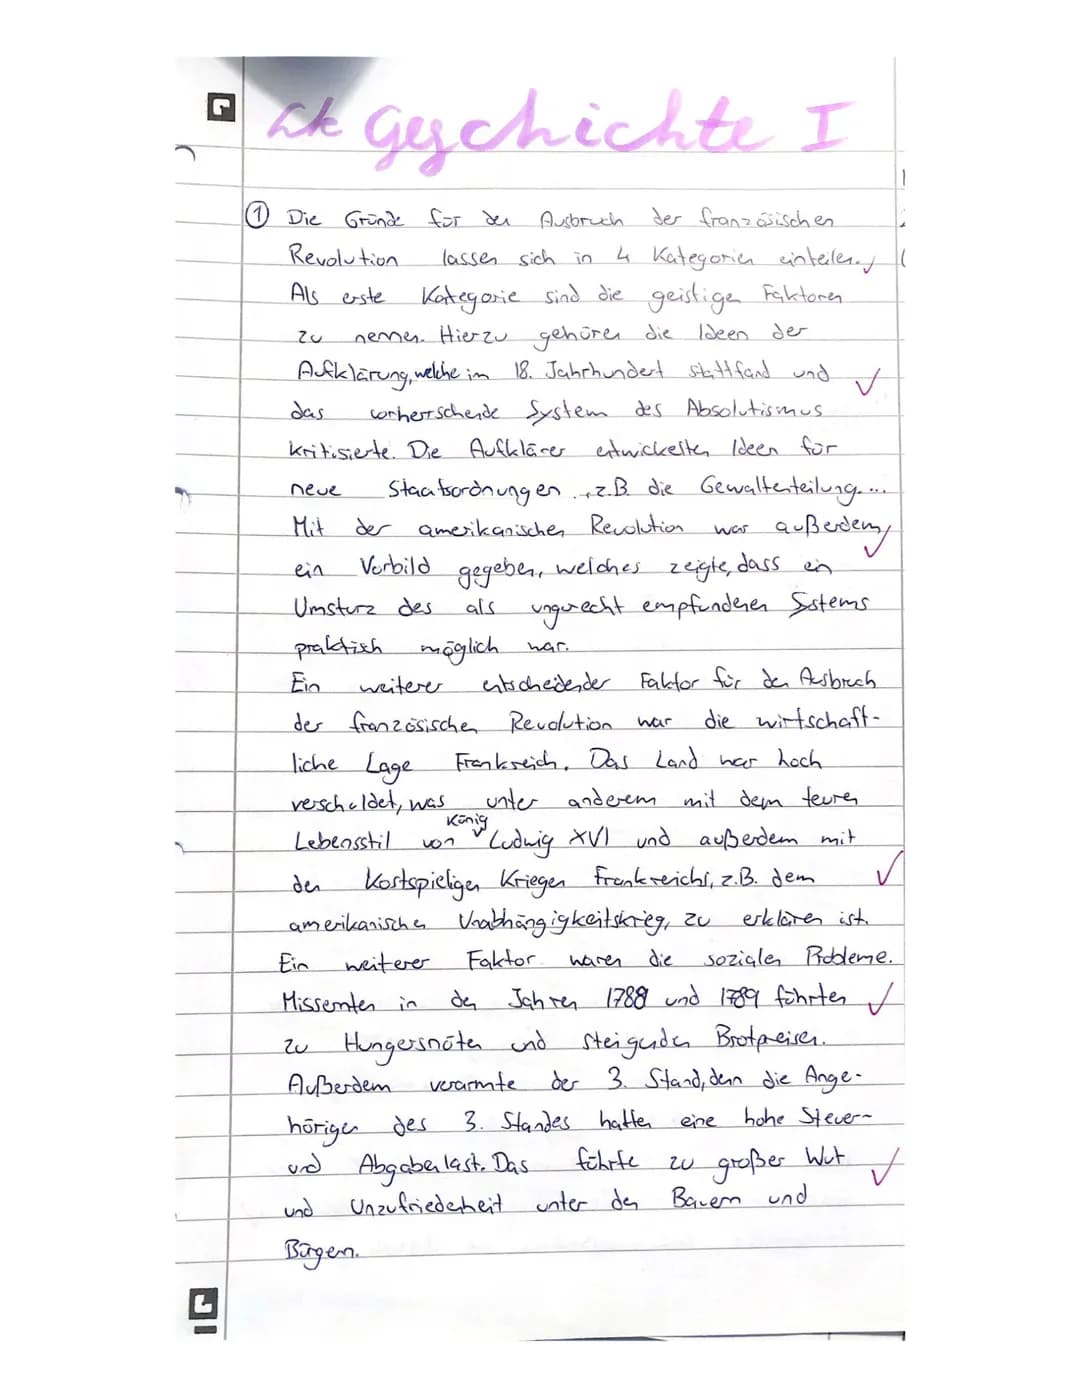 LK Geschichte I
① Die Gründe für den Ausbruch der französischen
Revolution lassen sich in 4 Kategorien einteilen.
Als erste Kategorie sind die geistigen Faktoren
zu nennen. Hierzu gehören die Ideen der
Aufklärung, welche im 18. Jahrhundert stattfand und
das vorherrschende System des Absolutismus
kritisierte. Die Aufklärer entwickelten Ideen für
neue Staatsordnungen, z.B. die Gewaltenteilung....
Mit der amerikanischen Revolution war außerdem
ein Vorbild gegeben, welches zeigte, dass ein
Umsturz des als ungerecht empfundenen Systems
praktisch möglich war.
Ein weiterer entscheidender Faktor für den Ausbruch
der französischen Revolution war die wirtschaft-
liche Lage Frankreich. Das Land war hoch
verschuldet, was unter anderem mit dem teuren
Lebensstil von König Ludwig XVI und außerdem mit
den kostspieligen Kriegen Frankreichs, z.B. dem
amerikanischen Unabhängigkeitskrieg, zu erklären ist.
Ein weiterer Faktor waren die sozialen Probleme.
Missernten in den Jahren 1788 und 1789 führten
zu Hungersnöten und steigenden Brotpreisen.
Außerdem verarmte der 3. Stand, denn die Ange-
hörigen des 3. Standes hatten eine hohe Steuer-
und Abgabenlast. Das führte zu großer Wut
und Unzufriedenheit unter den Bauern und
Bürgern.